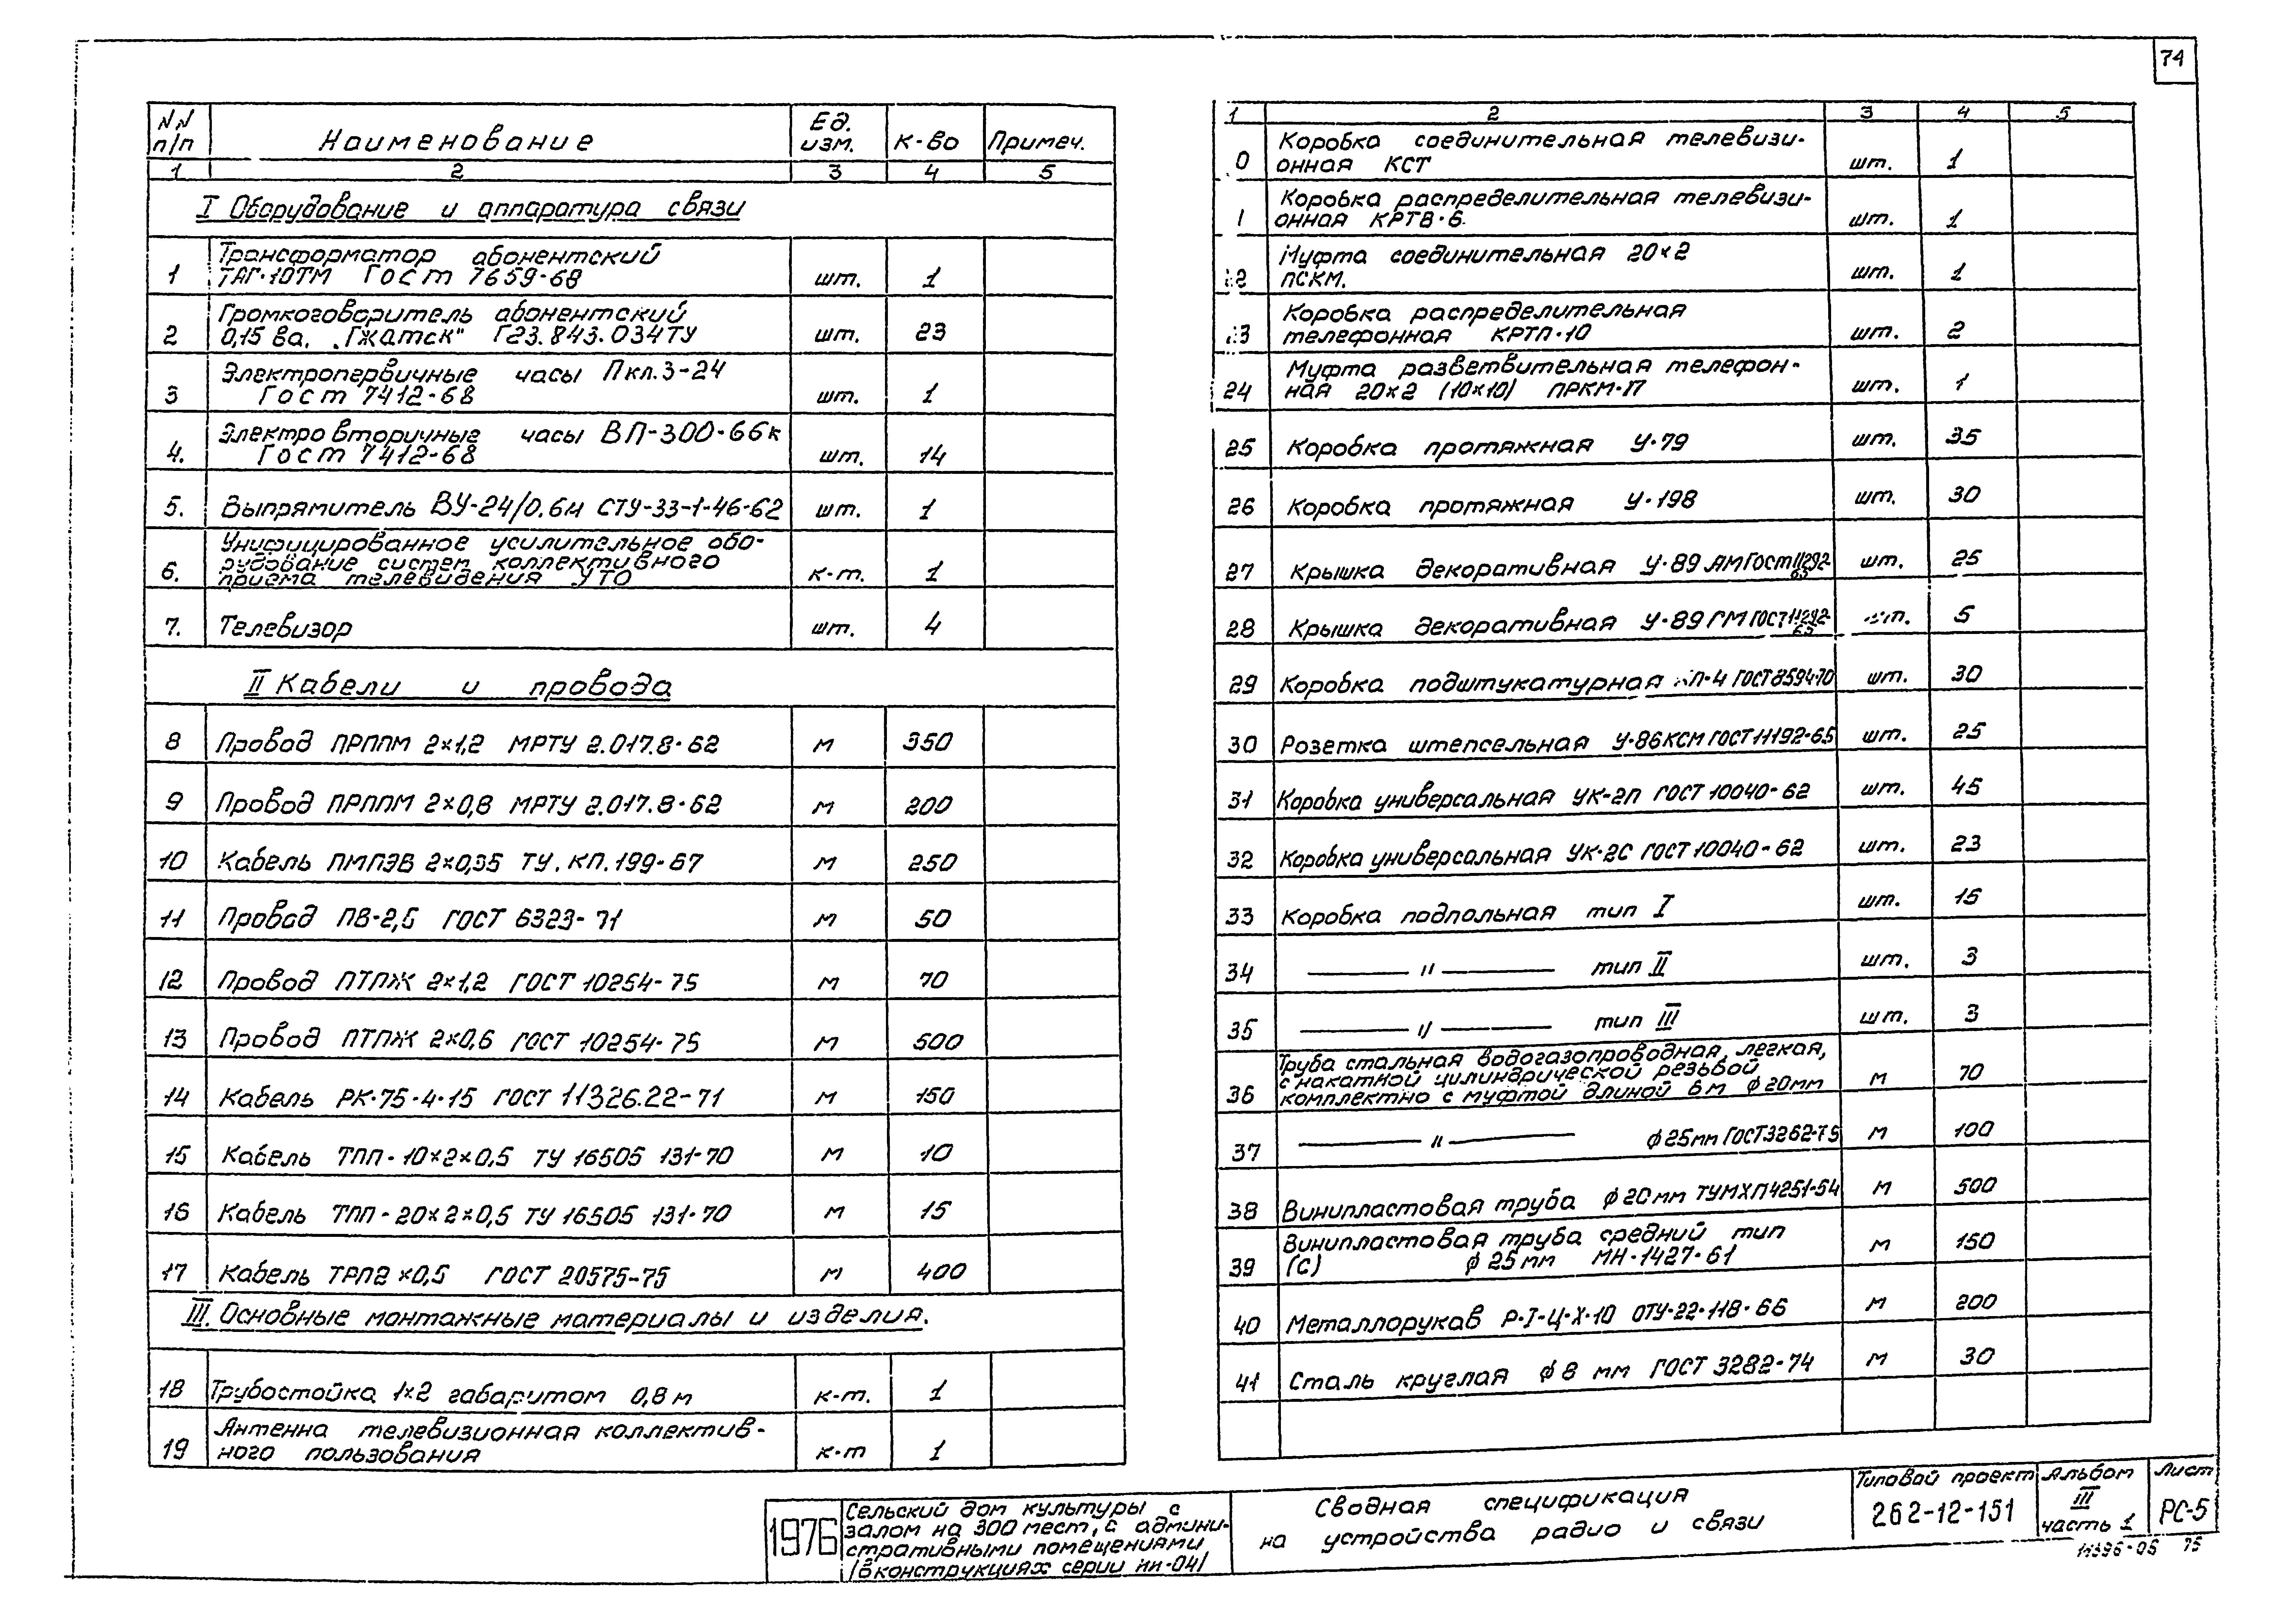 74
NN п/п Наименование Ед. изм. К-во Примеч.
1 2 3 4 5
I Оборудование и аппаратура связи
1 Трансформатор абонентский
ТАГ-10ТМ Гост 7659-68 шт. 1
2 Громкоговоритель абонентский
0,15 ва. „Гжатск" Г23.843.034ТУ шт. 23
3 Электропервичные часы Пкл.3-24
Гост 7412-68 шт. 1
4. Электровторичные часы ВП-300-66к
Гост 7412-68 шт. 14
5. Выпрямитель ВУ-24/0.6м СТУ-33-1-46-62 шт. 1
6. Унифицированное усилительное обо-
рудование систем коллективного
приема телевидения УТО к-т. 1
7. Телевизор шт. 4
II Кабели и провода
8 Провод ПРППМ 2×1,2 МРТУ 2.017.8-62 м 350
9 Провод ПРППМ 2×0,8 МРТУ 2.017.8-62 м 200
10 Кабель ПМПЭВ 2×0,35 ТУ. КП. 199-67 м 250
11 Провод ПВ-2,5 ГОСТ 6323-71 м 50
12 Провод ПТПЖ 2×1,2 ГОСТ 10254-75 м 70
13 Провод ПТПЖ 2×0,6 ГОСТ 10254-75 м 500
14 Кабель РК-75-4-15 ГОСТ 11326.22-71 м 150
15 Кабель ТПП-10×2×0,5 ТУ 16505 131-70 м 10
16 Кабель ТПП-20×2×0,5 ТУ 16505 131-70 м 15
17 Кабель ТРП2×0,5 ГОСТ 20575-75 м 400
III. Основные монтажные материалы и изделия.
18 Трубостойка 1×2 габаритом 0,8 м к-т. 1
19 Антенна телевизионная коллектив-
ного пользования к-т 1
1 2 3 4 5
0 Коробка соединительная телевизи-
онная КСТ шт. 1
1 Коробка распределительная телевизи-
онная КРТВ-6. шт. 1
2 Муфта соединительная 20×2
ПСКМ. шт. 1
3 Коробка распределительная
телефонная КРТП-10 шт. 2
24 Муфта разветвительная телефон-
ная 20×2 (10×10) ПРКМ-П шт. 1
25 Коробка протяжная У-79 шт. 35
26 Коробка протяжная У-198 шт. 30
27 Крышка декоративная У-89 АМ Гост 11292-65 шт. 25
28 Крышка декоративная У-89 ГМ ГОСТ 11292-65 шт. 5
29 Коробка подштукатурная П-4 ГОСТ 8594-70 шт. 30
30 Розетка штепсельная У-86КСМ ГОСТ 11192-65 шт. 25
31 Коробка универсальная УК-2П ГОСТ 10040-62 шт. 45
32 Коробка универсальная УК-2С ГОСТ 10040-62 шт. 23
33 Коробка подпольная тип I шт. 15
34 — " — тип II шт. 3
35 — " — тип III шт. 3
36 Труба стальная водогазопроводная, легкая,
с накатной цилиндрической резьбой
комплектно с муфтой длиной 6 м ϕ 20мм м 70
37 — " — ϕ 25мм ГОСТ 3262-75 м 100
38 Винипластовая труба ϕ 20мм ТУМХП4251-54 м 500
39 Винипластовая труба средний тип
(С) ϕ 25 мм МН-1427-61 м 150
40 Металлорукав Р-I-Ц-Х-10 ОТУ-22-118-66 м 200
41 Сталь круглая ϕ 8 мм ГОСТ 3282-74 м 30
1976
Сельский дом культуры с
залом на 300 мест, с админи-
стративными помещениями
/в конструкциях серии ии-04/
Сводная спецификация
на устройства радио и связи
Типовой проект
262-12-151
Альбом
III
часть 1
Лист
РС-5
75